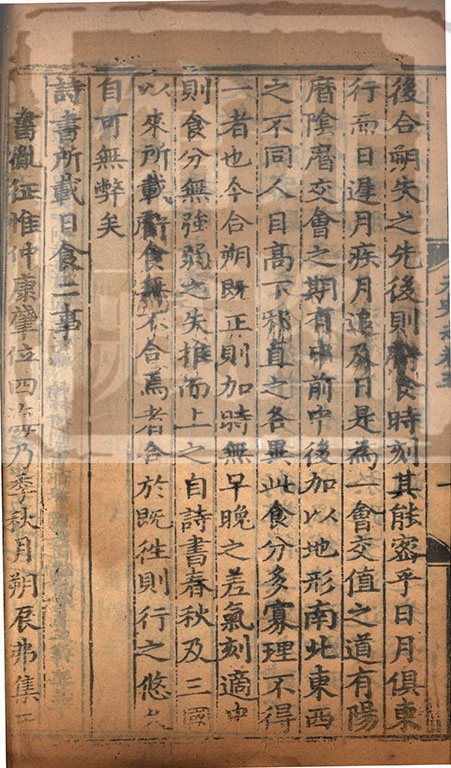 後合朔失之先後則虧食時刻其能密乎日月俱東
行而日遲月疾月追及日是為一會交值之道有陽
曆陰曆交會之期有中前中後加以地形南北東西
之不同人目高下邪直之各異此食分多寡理不得
一者也今合朔既正則加時無早晚之差氣刻適中
則食分無強弱之失推而上之自詩書春秋及三國
以來所載虧食無不合焉者合於既徃則行之悠久
自可無弊矣
詩書所載日食二事
書胤征惟仲康肇位四海乃季秋月朔辰弗集于